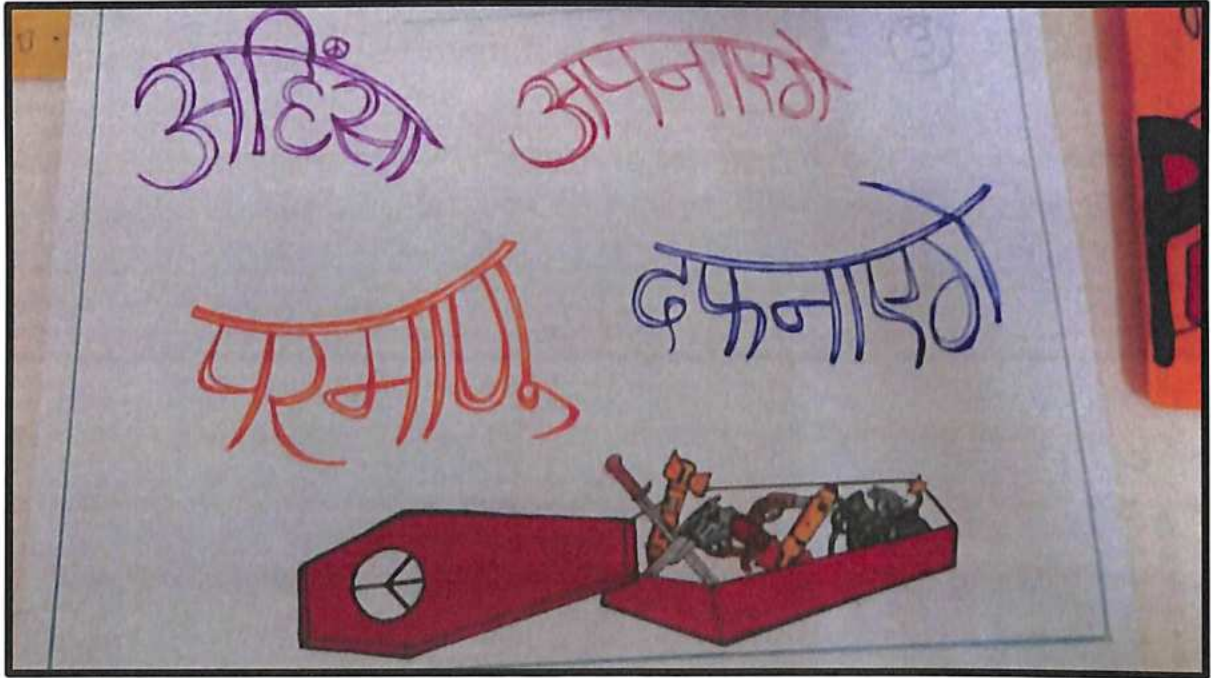 अहिंसा अपनाएगे
परमाणु दफनाएगे
3